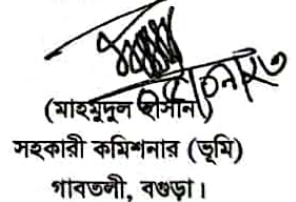 (মাহমুদুল হাসান)
সহকারী কমিশনার (ভূমি)
গাবতলী, বগুড়া।